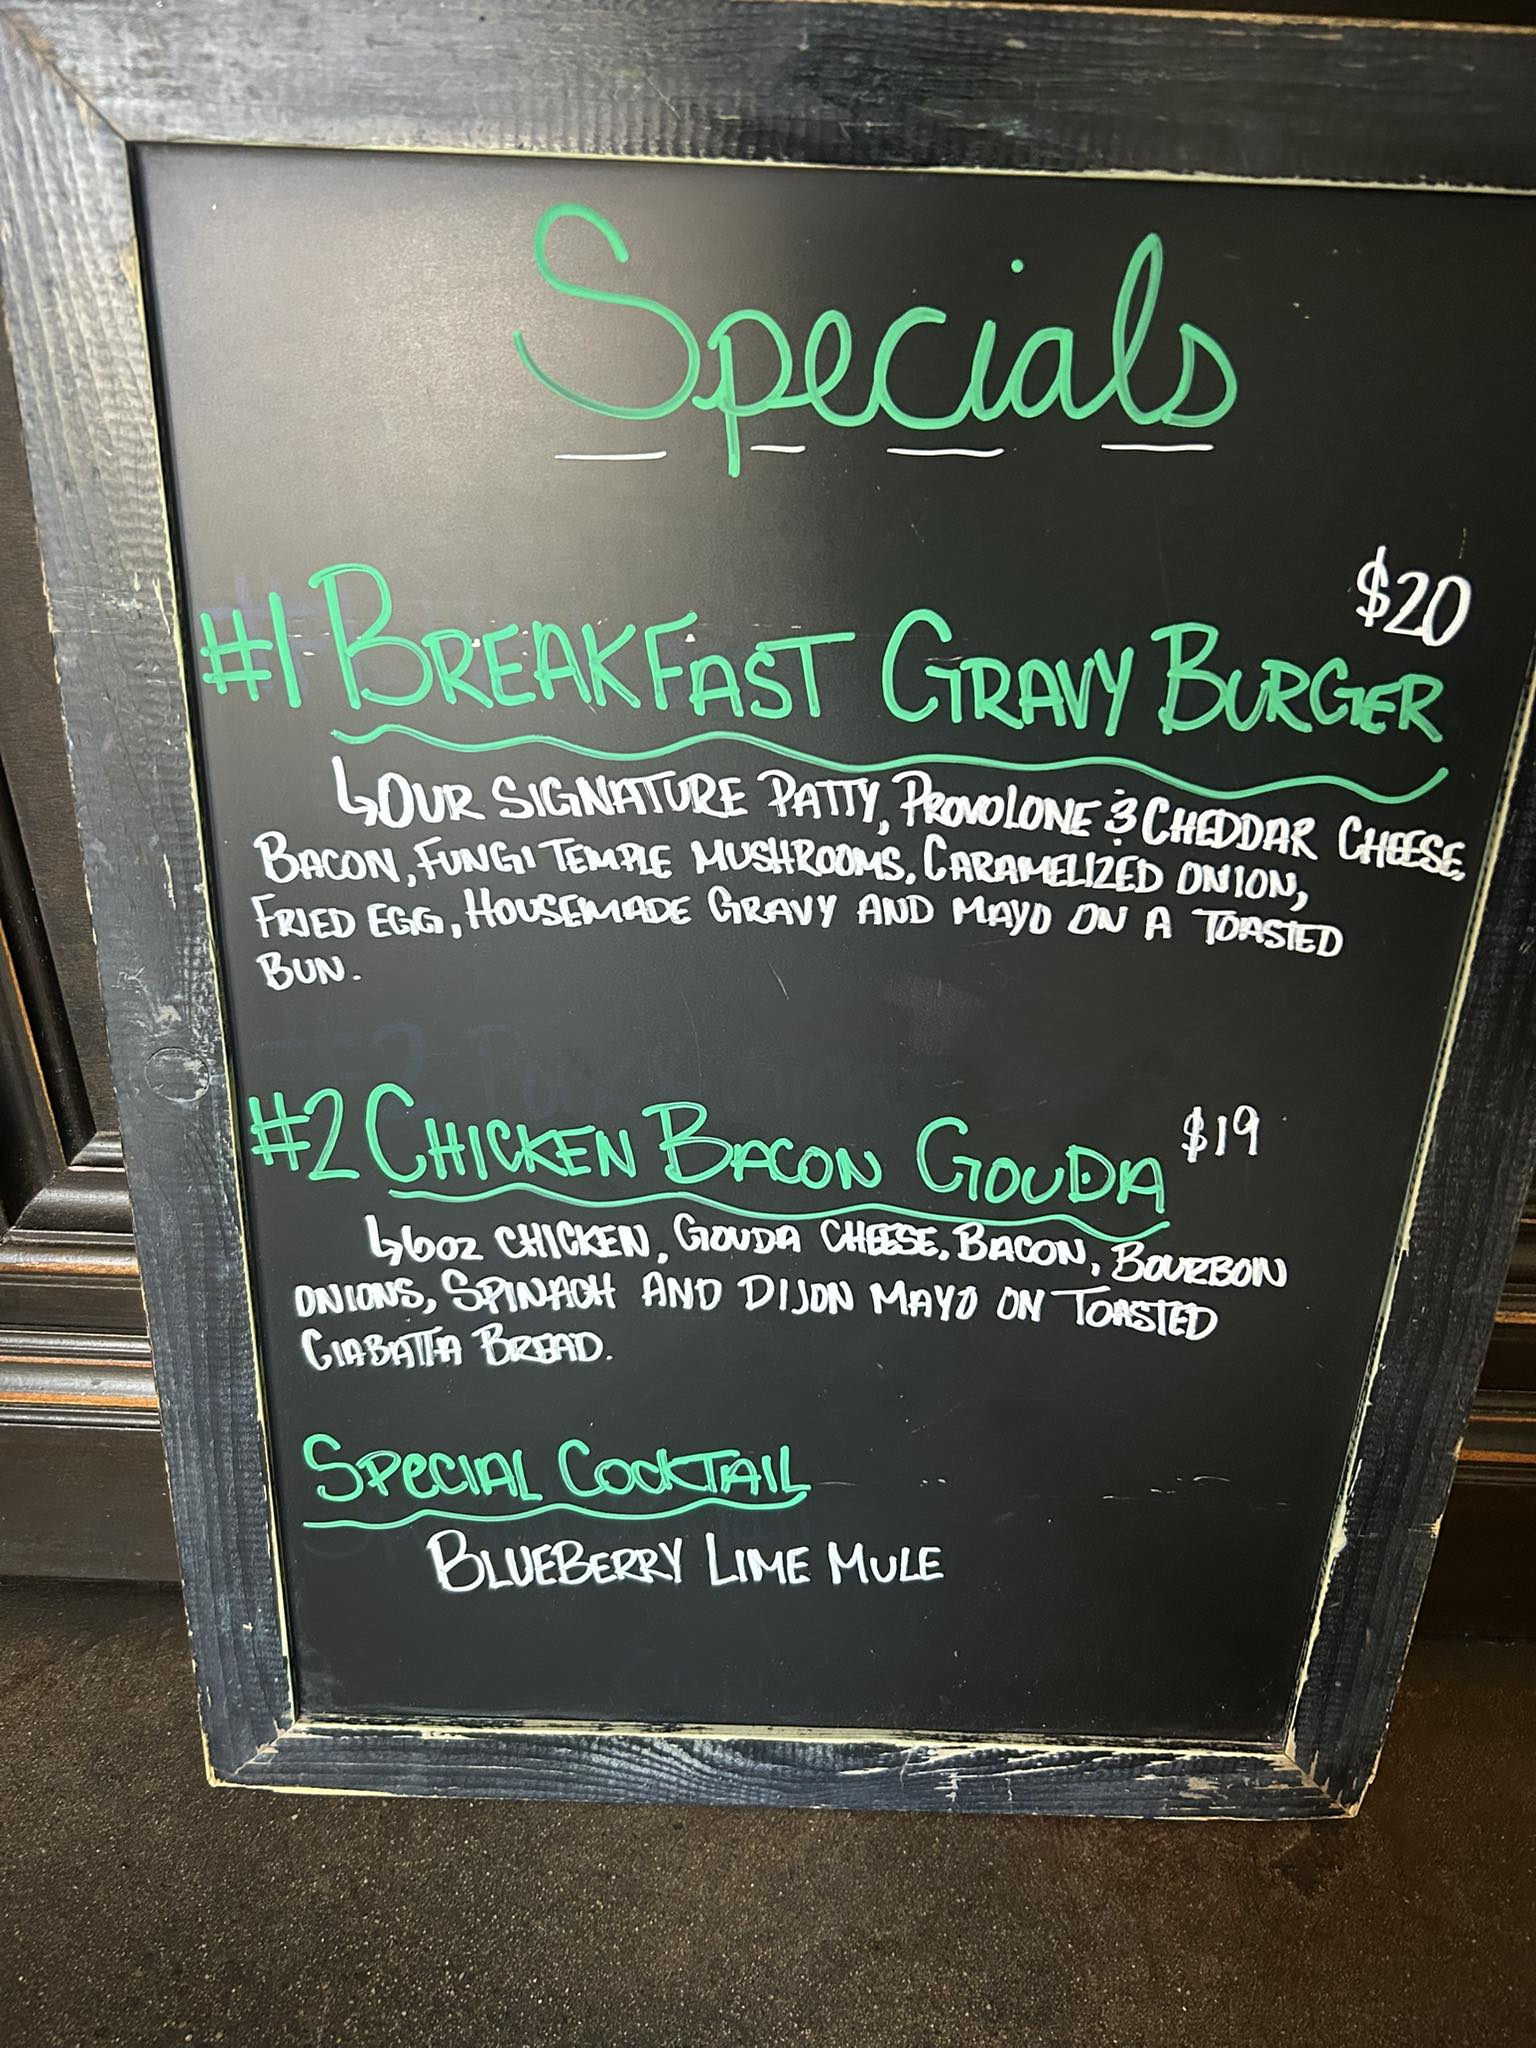 Specials
$20
#1 BREAKFAST GRAVY BURGER
↳ OUR SIGNATURE PATTY, PROVOLONE & CHEDDAR CHEESE,
BACON, FUNGI TEMPLE MUSHROOMS, CARAMELIZED ONION,
FRIED EGG, HOUSEMADE GRAVY AND MAYO ON A TOASTED
BUN.
#2 CHICKEN BACON GOUDA $19
↳ 6oz CHICKEN, GOUDA CHEESE, BACON, BOURBON
ONIONS, SPINACH AND DIJON MAYO ON TOASTED
CIABATTA BREAD.
SPECIAL COCKTAIL
BLUEBERRY LIME MULE